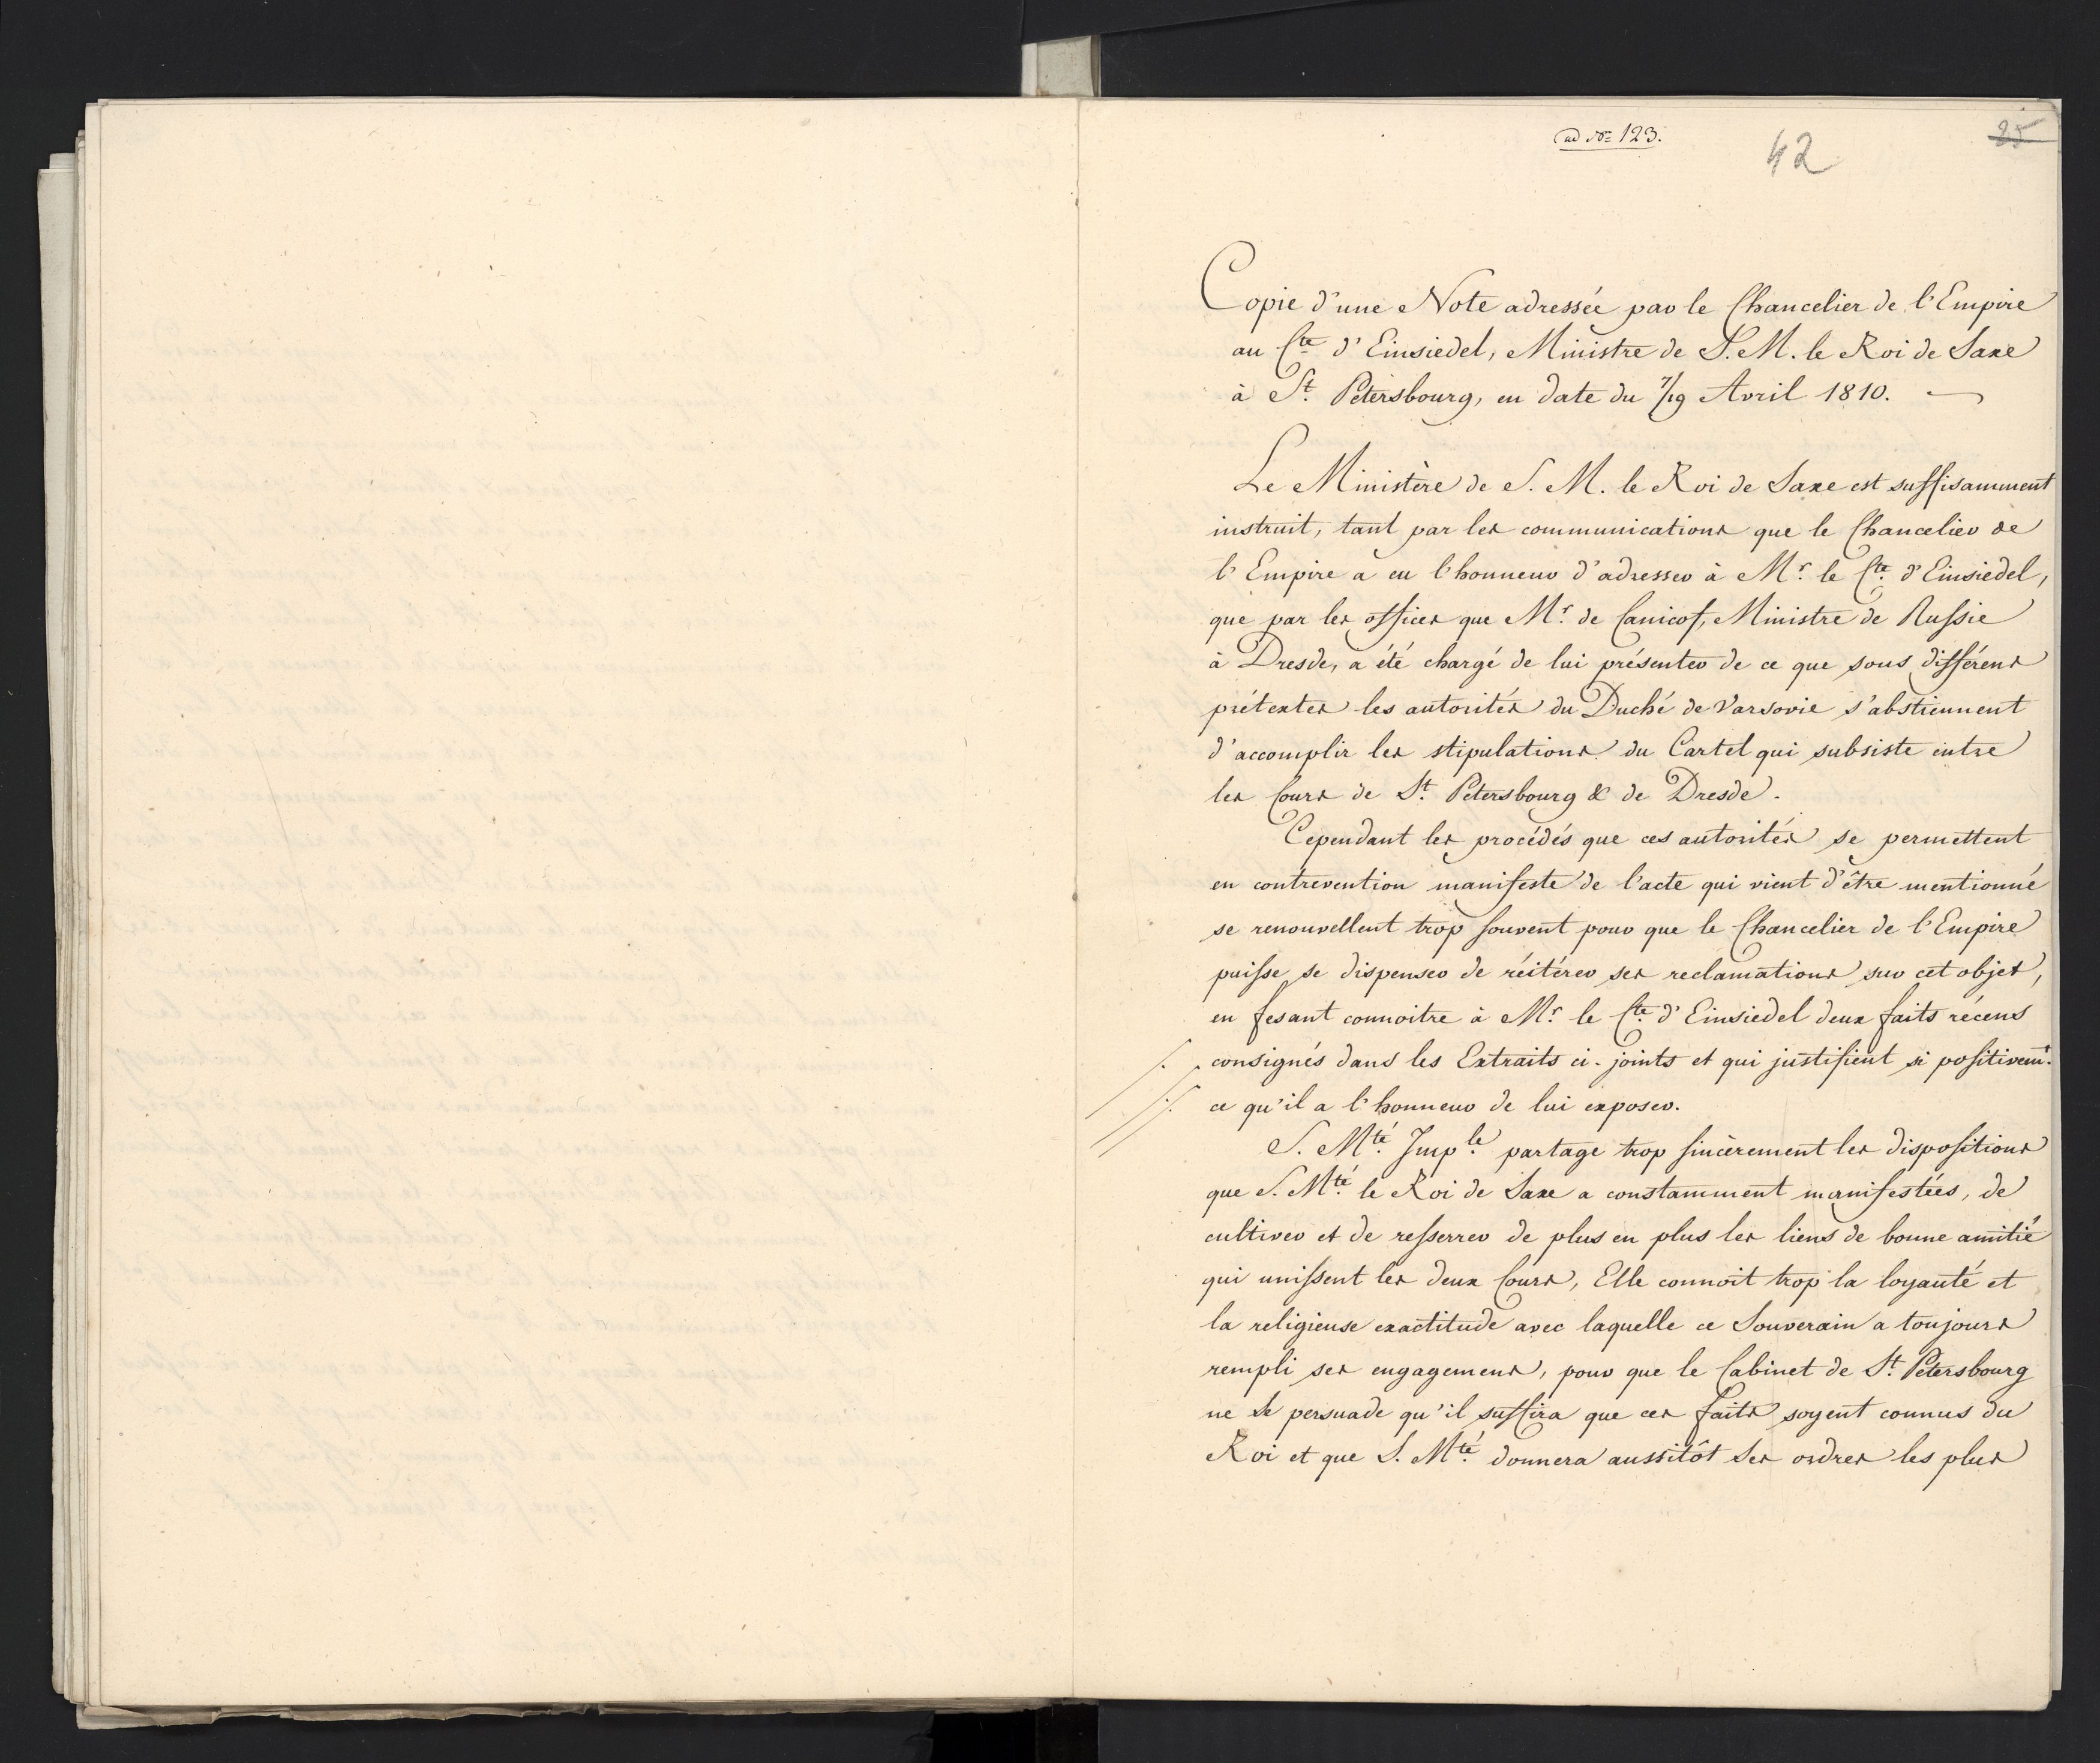 ad No 123.
42
25
Copie d'une Note adressée par le Chancelier de l'Empire
au Cte d'Einsiedel, Ministre de S. M. le Roi de Saxe
à St. Petersbourg, en date du 7/19 Avril 1810. —
Le Ministère de S. M. le Roi de Saxe est suffisamment
instruit, tant par les communications que le Chancelier de
l'Empire a eu l'honneur d'adresser à Mr. le Cte. d'Einsiedel,
que par les offices que Mr. de Canicof, Ministre de Russie
à Dresde, a été chargé de lui présenter de ce que sous différens
prétextes les autorités du Duché de Varsovie s'abstiennent
d'accomplir les stipulations du Cartel qui subsiste entre
les Cours de St. Petersbourg & de Dresde.
Cependant les procédés que ces autorités se permettent
en contrevention manifeste de l'acte qui vient d'être mentionné
se renouvellent trop souvent pour que le Chancelier de l'Empire
puisse se dispenser de réitérer ses reclamations sur cet objet,
en fesant connoitre à Mr. le Cte. d'Einsiedel deux faits récens
consignés dans les Extraits ci-joints et qui justifient si positivemt.
ce qu'il a l'honneur de lui exposer.
S. Mté. Imple. partage trop sincèrement les dispositions
que S. Mté. le Roi de Saxe a constamment manifestées, de
cultiver et de resserrer de plus en plus les liens de bonne amitié
qui unissent les deux Cours, Elle connoit trop la loyauté et
la religieuse exactitude avec laquelle ce Souverain a toujours
rempli ses engagemens, pour que le Cabinet de St. Petersbourg
ne se persuade qu'il suffira que ces faits soyent connus du
Roi et que S. Mté. donnera aussitôt Ses ordres les plus